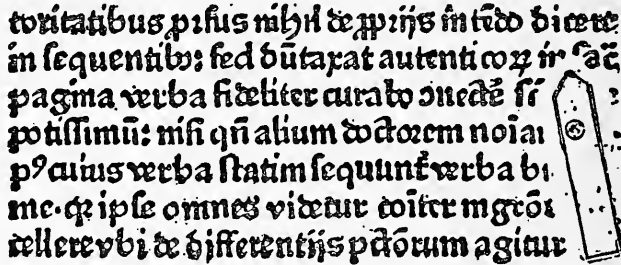 toritatibus pꝛsus nihil de ꝓprijs intēdo dicere
in sequentibꝰ: sed dūtaxat autenticoꝝ in sac̄
pagina verba fideliter curabo ɔnectē
potissimū: nisi qn̄ alium doctorem noīa
pꝰ cuius verba statim sequunt̄ verba
me. ꝙ ipse omnes videtur coīter mgrō
cellere vbi de differentijs pc̄tōrum agitur